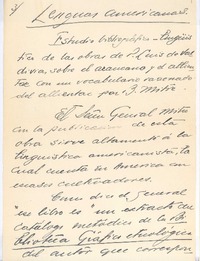 Lenguas americanas.
Estudio bibliográfico-lingüís
tico de las obras del P. Luis de Val
divia, sobre el araucano y el allen
tiac con un vocabulario razonado
del allentiac por B. Mitre.
El Señor General Mitre
con la publicación de esta
obra sirve altamente á la
lingüística americanista, la
cual cuenta en América con
escasos cultivadores.
Como dice el general
"su libro es un extracto del
catálogo metódico de la Bi
blioteca Gráfica etnológica
del autor que correspon